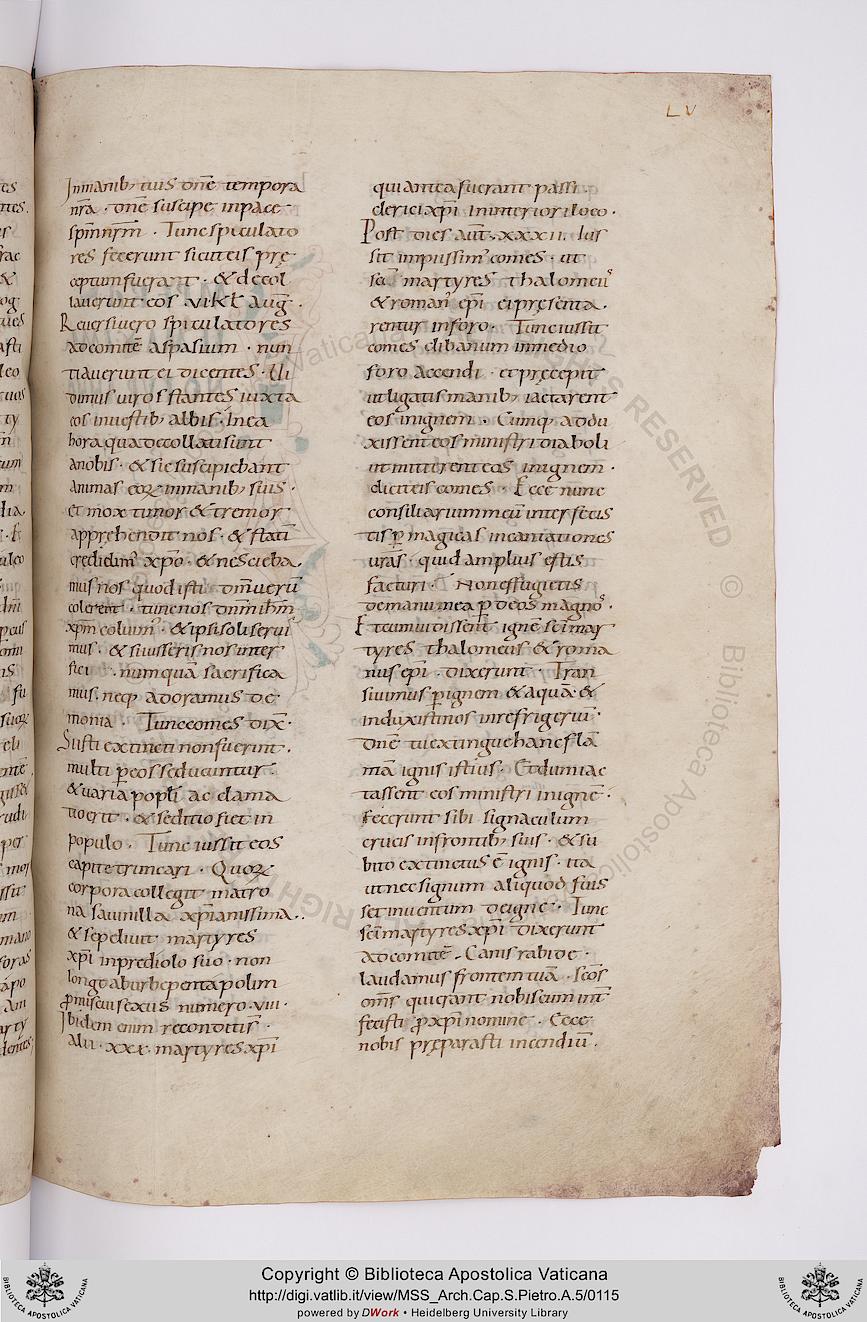 LV
Inmanib; tuis dn̄e tempora
nr̄a · dn̄e suscipe inpace
sp̄mnr̄m · Tunc spiculato
res fecerunt sicuteis pre
ceptumfuerant · & decol
lauerunt eos · vi kł aug̅ ·
Reuersiuero spiculatores
adcomitē aspasium · nun
tiauerunt ei dicentes · Ui
dimus uiros stantes iuxta
eos inuestib; albis · Inea
hora quadecollatisunt
anobis · & sic suscipiebant
animas eoꝝ inmanib; suis ·
et mox timor & tremor
apprehendit nos · & statī
credidim᾿ xp̄o · & nescieba
mus nos quod isti dm̄uerū
colerent · tunc nos dn̄m ih̄m
xp̄m colum᾿ · & ipsi soli serui
mus · & siiusseris nos inter
fici · numquā sacrifica
mus · neq; adoramus de
monia · Tunc comes dix̄ ·
Siisti extincti nonfuerint ·
multi p̱eos seducuntur ·
& uaria popłi acclama
tio erit · & seditio fiet in
populo · Tunc iussit eos
capite truncari · Quoꝝ
corpora collegit matro
na sauinilla xp̄ianissima ·
& sepeliuit martyres
xp̄i inprediolo suo · non
longe aburbe pentapolim
promiscui sexus numero · viii ·
Ibidem enim reconditis ·
alii · xxx · martyres xp̄i
qui antea fuerant passi ·
clerici xp̄i ininteriori loco ·
Post dies aūt · xxxii · Ius
sit impiissim᾿ comes · ut
sc̄i martyres thalomeus
& roman᾿ ep̄i ei presenta
rentur inforo · Tunc iussit
comes clibanum inmedio
foro accendi · et precepit
ut ligatis manib; iactarent
eos inignem · Cumq; addu
xissent eos ministri diaboli
ut mitterent eos inignem ·
dicit eis comes · Ecce nunc
consiliarium meū interfecis
tis p̱ magicas incantationes
ur̄as · quid amplius estis
facturi · Non effugietis
demanu mea p̱ deos magnos ·
Et cumuidissent ignē sc̄i mar
tyres thalomeus & roma
nus ep̄i · dixerunt · Tran
siuimus p̱ignem & aquā · &
induxistinos inrefrigeriū ·
dn̄e tu extingue hanc flā
mā ignis istius · Et dum iac
tassent eos ministri inignē ·
Fecerunt sibi signaculum
crucis infrontib; suis · & su
bito extinctus ē ignis · ita
ut nec signum aliquod fuis
set inuentum deigne · Tunc
sc̄i martyres xp̄i dixerunt
adcomitē · Canis rabide ·
laudamus frontem tuā · sc̄os
om̄s qui erant nobiscum int̄
fecisti pro xp̄i nomine · Ecce
nobis preparasti incendiū ·
Copyright © Biblioteca Apostolica Vaticana
http://digi.vatlib.it/view/MSS_Arch.Cap.S.Pietro.A.5/0115
powered by DWork • Heidelberg University Library